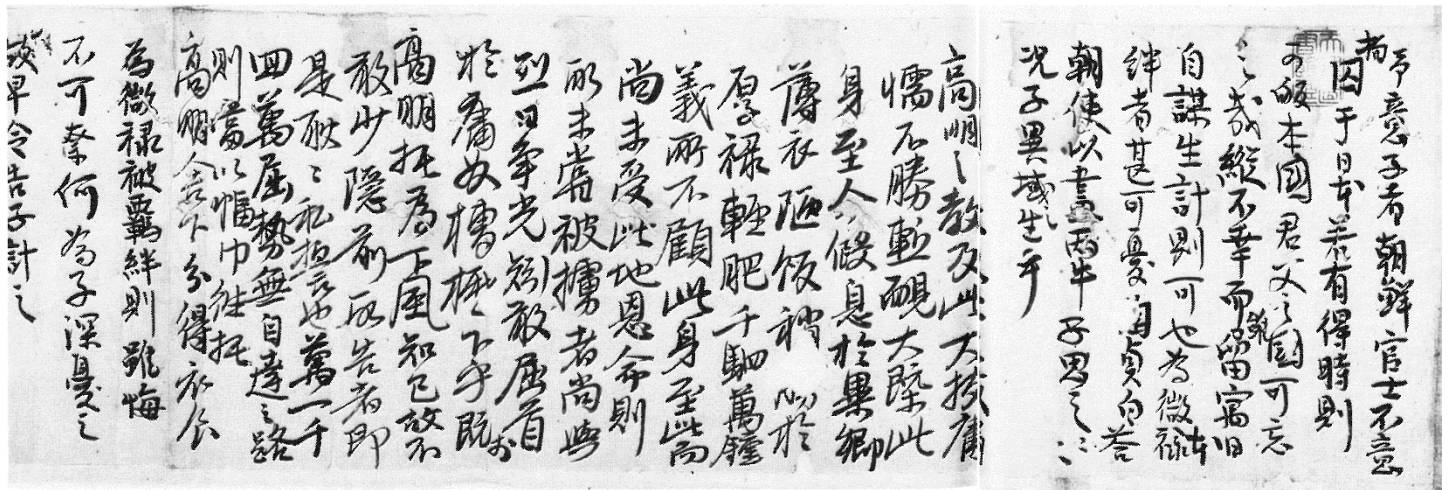 予意子者朝鮮官士不意
者囚于日本若有得時則
可皈本國君父之國可忘
之哉縦不幸而留寓旧
自謀生計則可也為微禄
絆者甚可憂自貞白答
朝使以書両牛子男之
况子異域生乎
高明之教及此大
懦不勝慙覥大槩此
身至人假息於異郷
薄衣陋飯於
厚禄輕肥千駟萬鍾
義所不顧此身至此而
尚未受此地恩命則
所未嘗被擄者尚与
烈日争光敢屈首
於庸奴槽櫪下乎既
高明抵為下風知己故不
敢少隠前所告者即
是耿々私也萬一千
四萬屈勢無自達之路
則當以幅巾往托
高明舎下分得衣食
為微禄被羈絆則雖悔
不可奈何為子深憂之
該早令告子計之